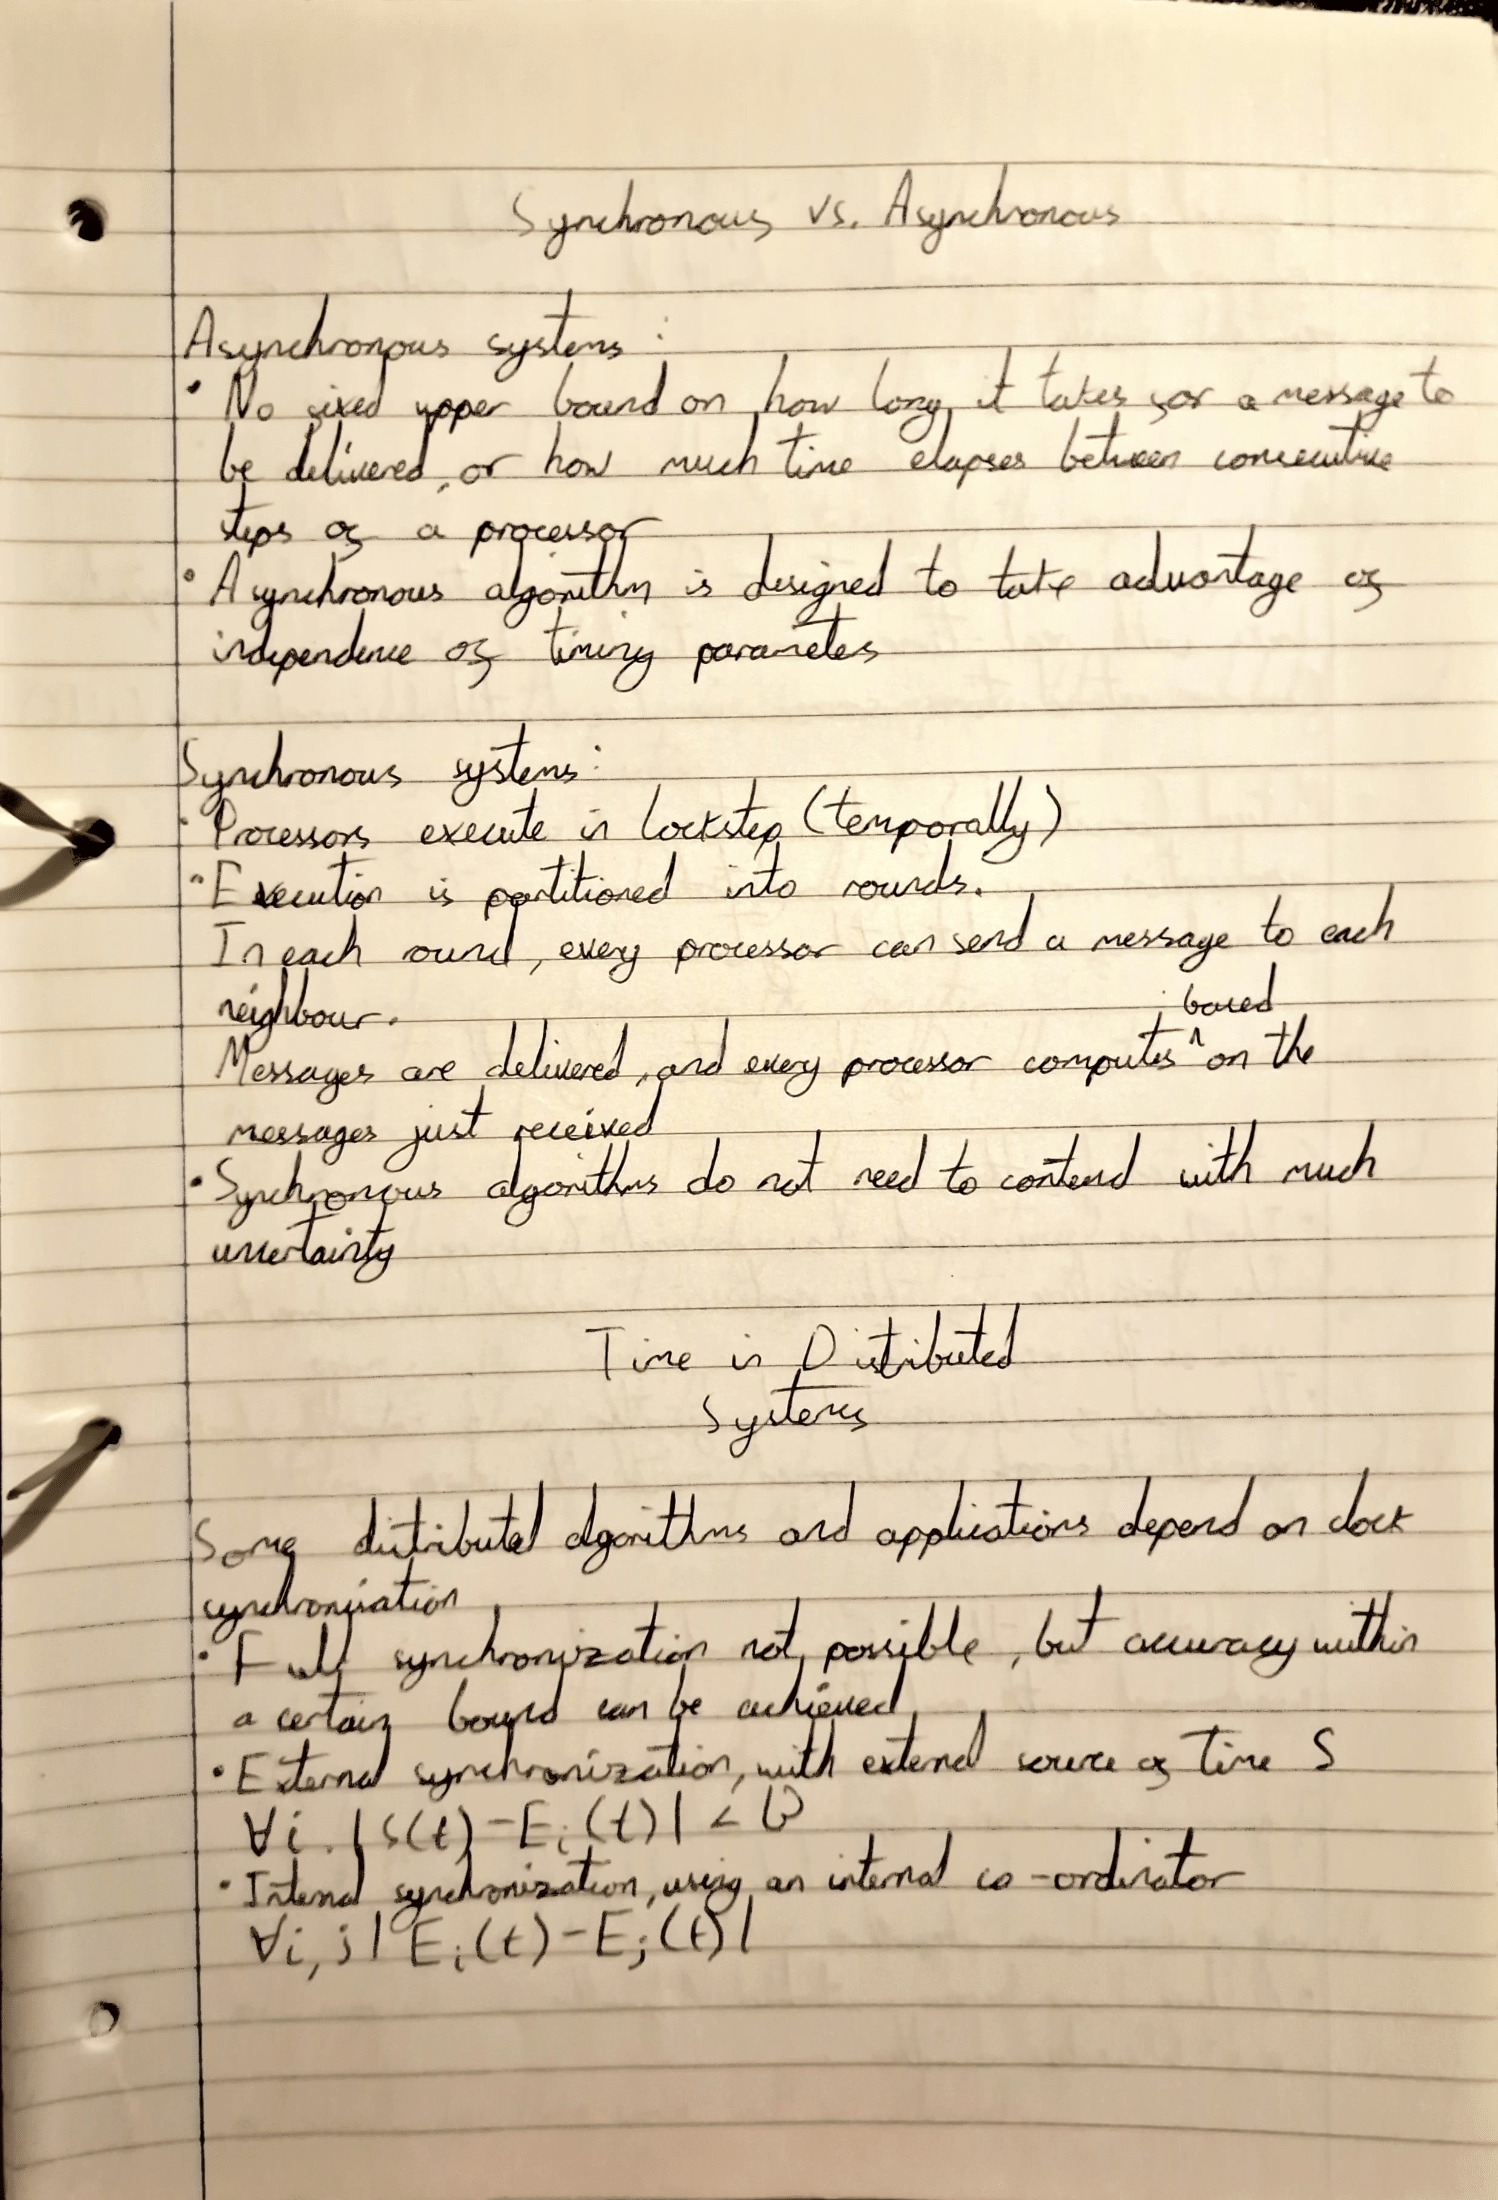 Synchronous vs. Asynchronous
Asynchronous systems:
• No fixed upper bound on how long it takes for a message to
be delivered, or how much time elapses between consecutive
steps of a processor
• Asynchronous algorithm is designed to take advantage of
independence of timing parameters
Synchronous systems:
• Processors execute in lockstep (temporally)
• Execution is partitioned into rounds.
In each round, every processor can send a message to each
neighbour.
Messages are delivered, and every processor computes ^based on the
messages just received
• Synchronous algorithms do not need to contend with much
uncertainty
Time in Distributed
Systems
Some distributed algorithms and applications depend on clock
synchronization
• Full synchronization not possible, but accuracy within
a certain bound can be achieved
• External synchronization, with external source of time S
∀i. |S(t) - E_i(t)| < D
• Internal synchronization, using an internal co-ordinator
∀i, j | E_i(t) - E_j(t)|